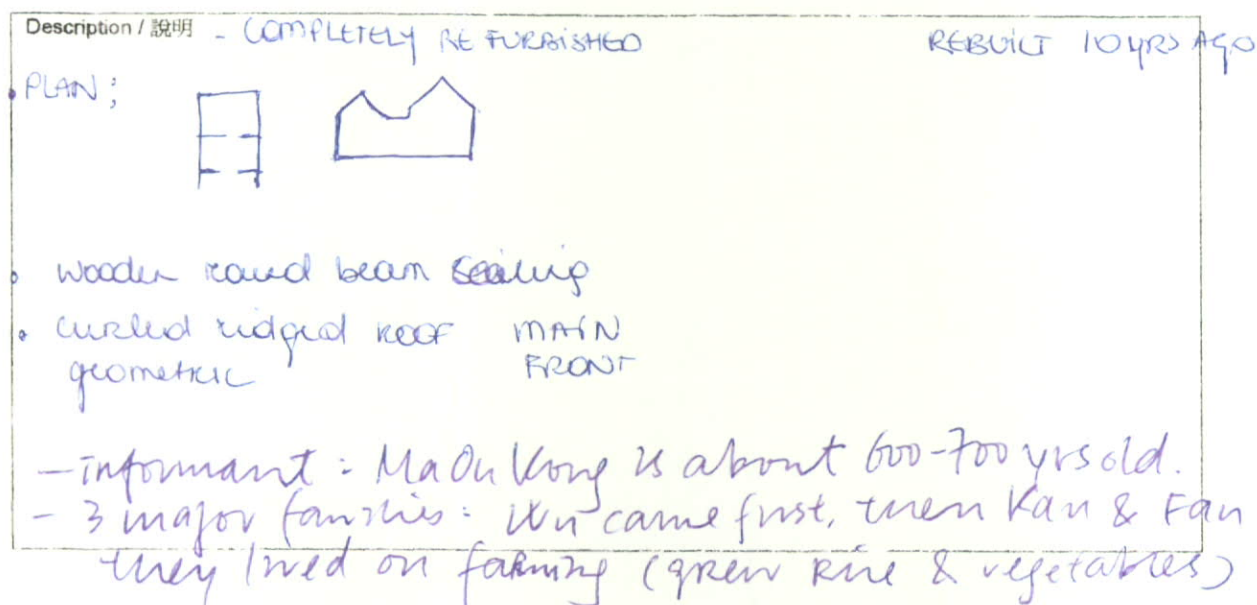 Description / 說明 - COMPLETELY REFURBISHED REBUILT 10 YRS AGO
• PLAN;
• wooden round beam
• curled ridged ROOF MAIN
geometric FRONT
- informant: Ma On Kong is about 600-700 yrs old.
- 3 major families: Wu came first, then Kan & Fan
they lived on farming (grew rice & vegetables)